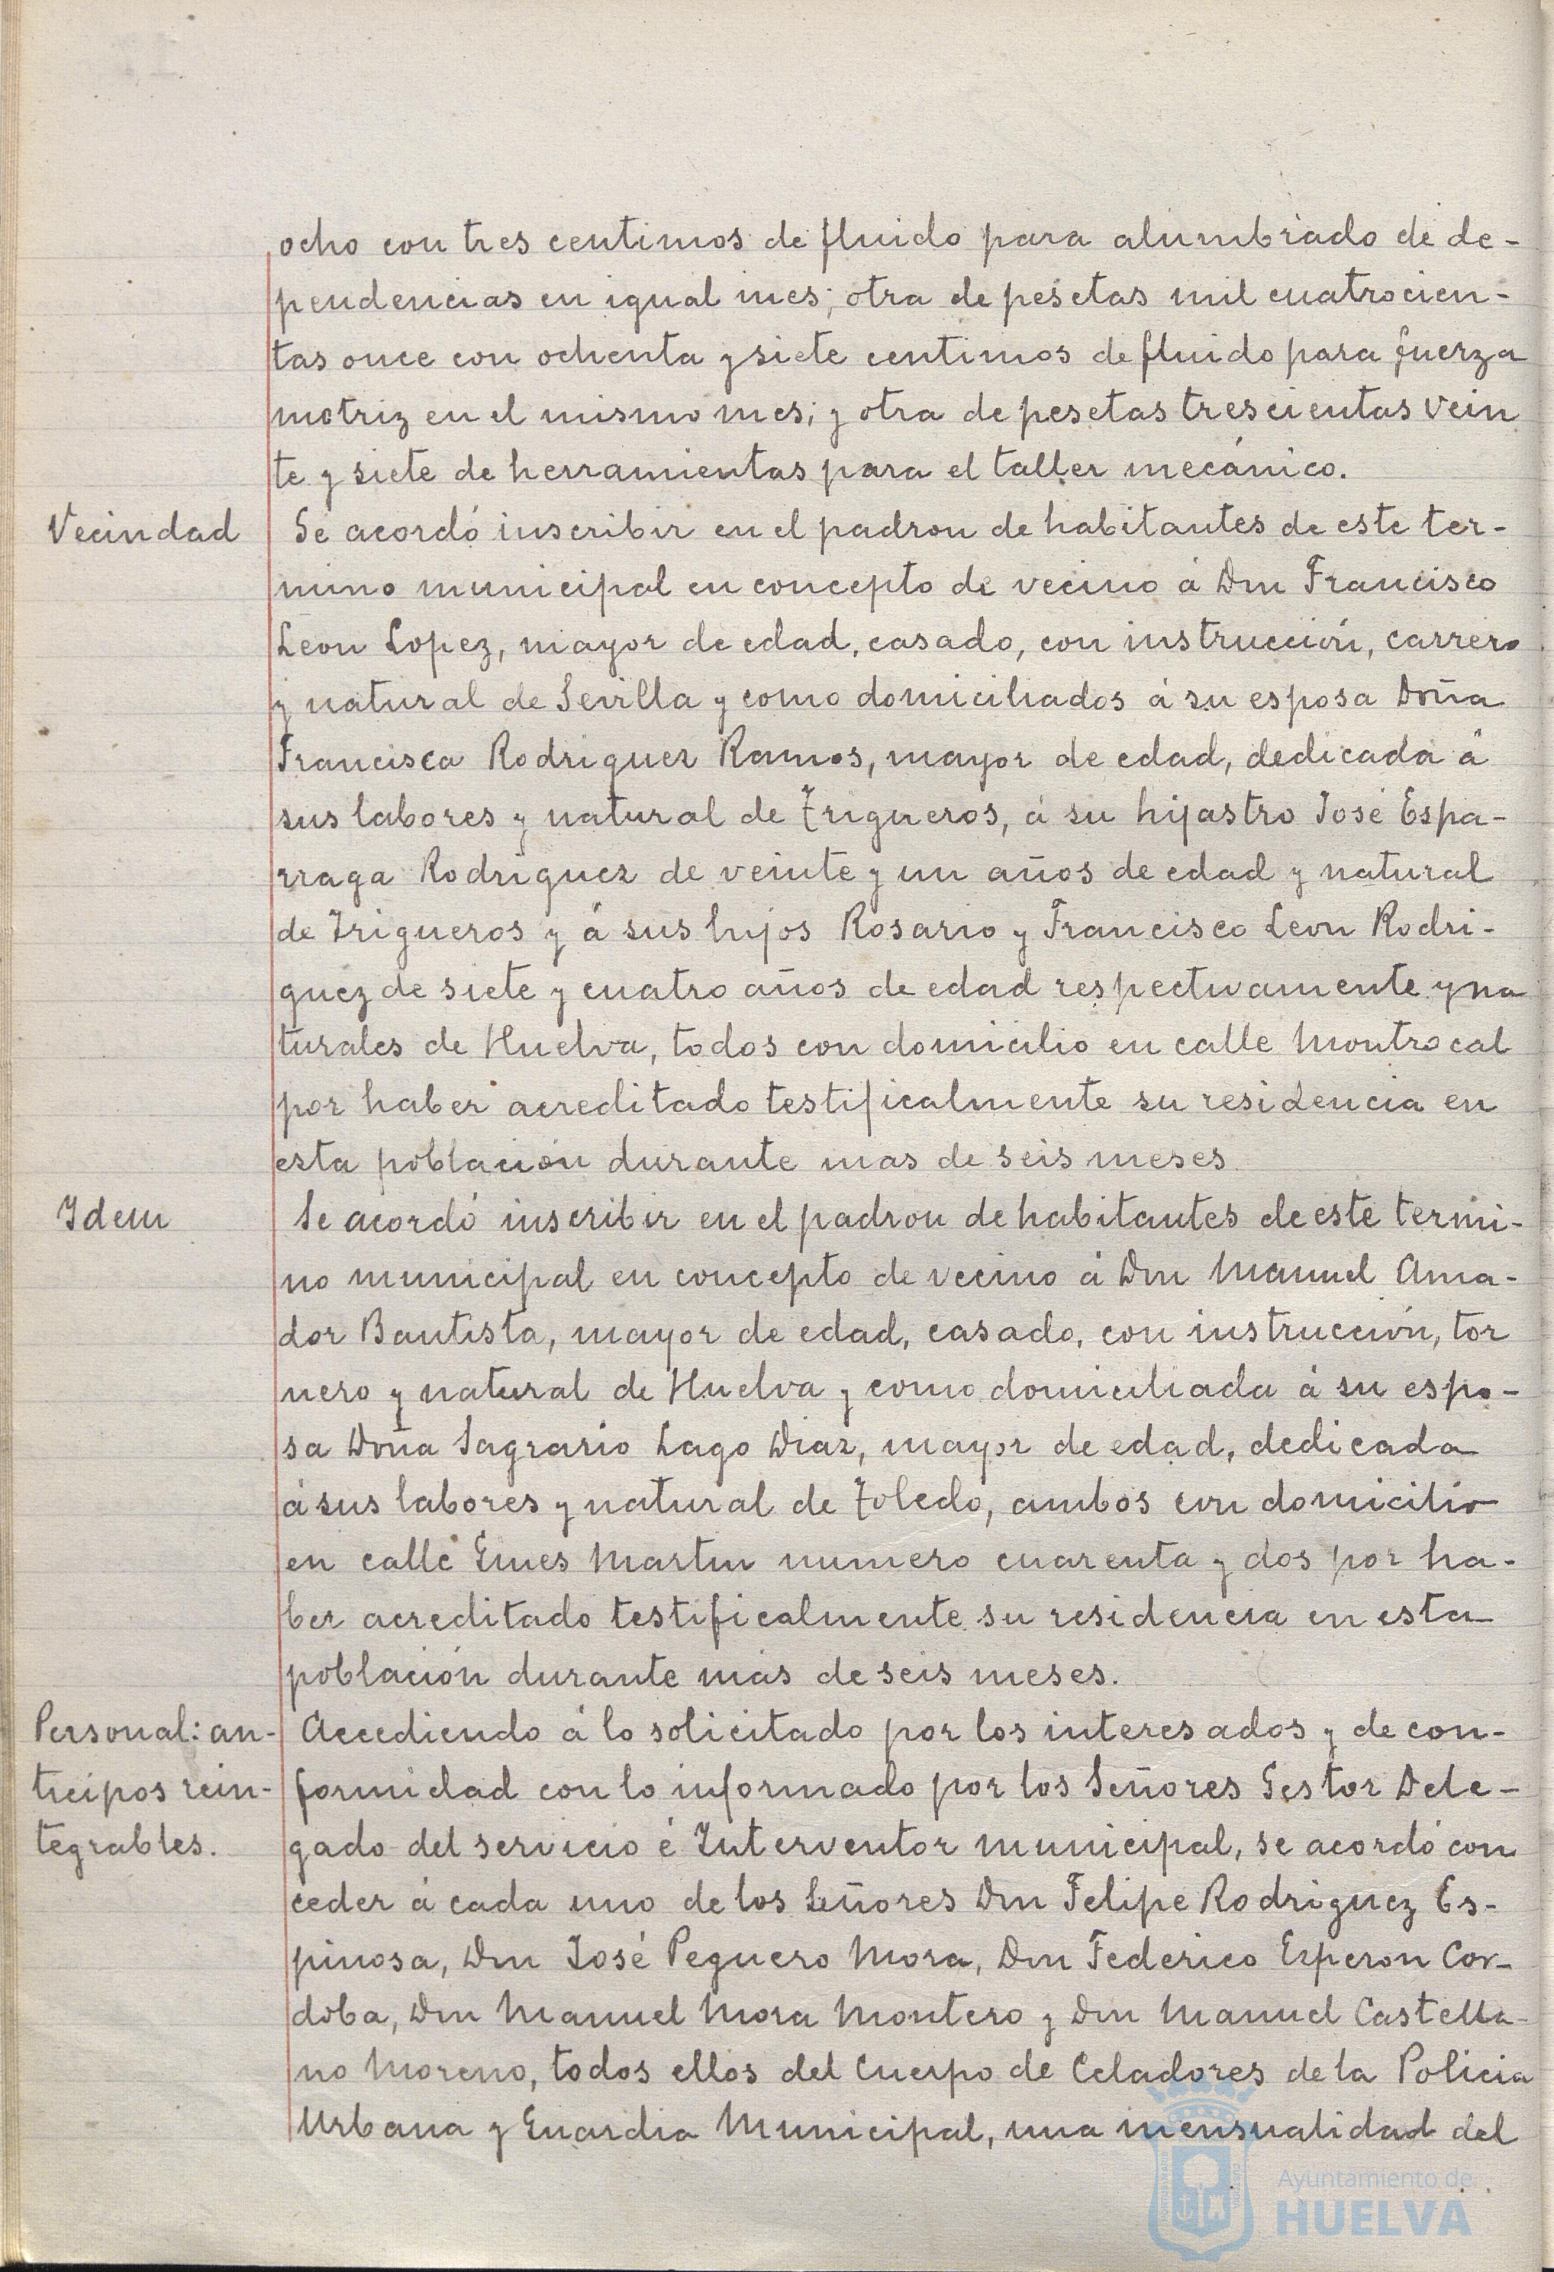 ocho con tres centimos de fluido para alumbrado de de-
pendencias en igual mes; otra de pesetas mil cuatrocien-
tas once con ochenta y siete centimos de fluido para fuerza
motriz en el mismo mes; y otra de pesetas trescientas vein
te y siete de herramientas para el taller mecánico.
Vecindad
Se acordó inscribir en el padron de habitantes de este ter-
mino municipal en concepto de vecino á Don Francisco
Leon Lopez, mayor de edad, casado, con instrucción, carrero
y natural de Sevilla y como domiciliados á su esposa Doña
Francisca Rodriguez Ramos, mayor de edad, dedicada á
sus labores y natural de Trigueros, á su hijastro José Espa-
rraga Rodriguez de veinte y un años de edad y natural
de Trigueros y á sus hijos Rosario y Francisco Leon Rodri-
guez de siete y cuatro años de edad respectivamente y na
turales de Huelva, todos con domicilio en calle Montrocal
por haber acreditado testificalmente su residencia en
esta población durante mas de seis meses.
Idem
Se acordó inscribir en el padron de habitantes de este termi-
no municipal en concepto de vecino á Don Manuel Ama-
dor Bautista, mayor de edad, casado, con instrucción, tor
nero y natural de Huelva y como domiciliada á su espo-
sa Doña Sagrario Lago Diaz, mayor de edad, dedicada
á sus labores y natural de Toledo, ambos con domicilio
en calle Gines Martin numero cuarenta y dos por ha-
ber acreditado testificalmente su residencia en esta
población durante más de seis meses.
Personal: an-
ticipos rein-
tegrables.
Accediendo á lo solicitado por los interesados y de con-
formidad con lo informado por los Señores Gestor Dele-
gado del servicio é Interventor municipal, se acordó con
ceder á cada uno de los Señores Don Felipe Rodriguez Es-
pinosa, Don José Peguero Mora, Don Federico Esperon Cor-
doba, Don Manuel Mora Montero y Don Manuel Castella-
no Moreno, todos ellos del Cuerpo de Celadores de la Policia
Urbana y Guardia Municipal, una mensualidad del
Ayuntamiento de
HUELVA